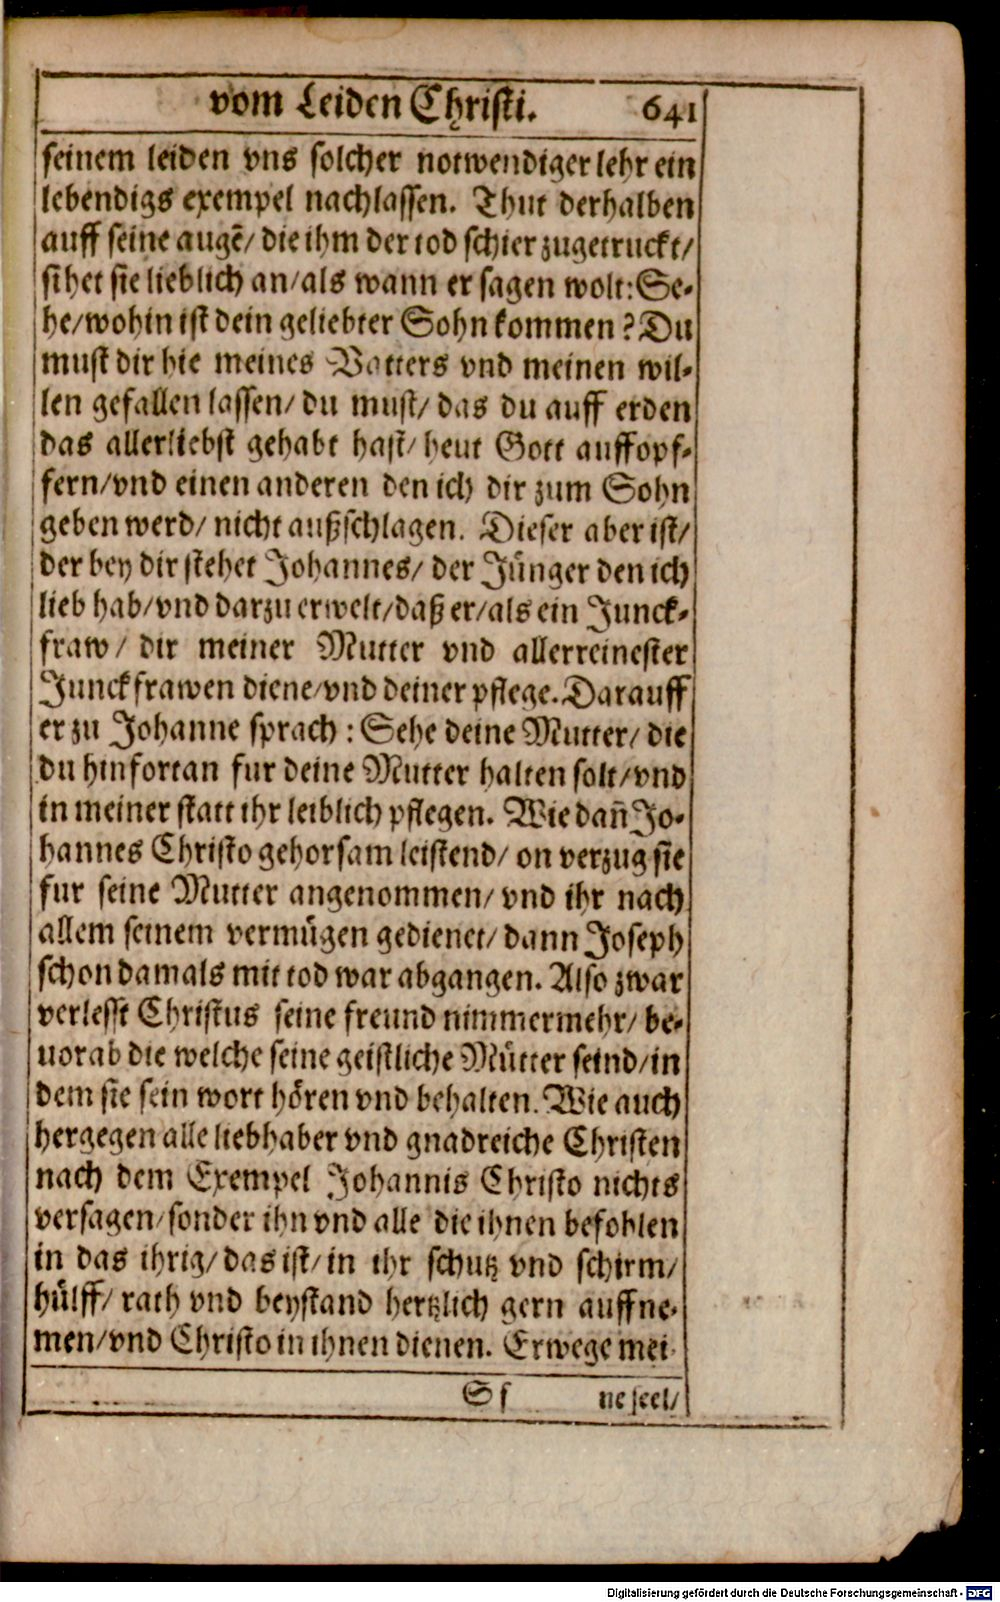 vom Leiden Christi. 641
seinem leiden vns solcher notwendiger lehr ein
lebendigs exempel nachlassen. Thut derhalben
auff seine augẽ/ die ihm der tod schier zugetruckt/
sihet sie lieblich an/als wann er sagen wolt: Se-
he/wohin ist dein geliebter Sohn kommen? Du
must dir hie meines Vatters vnd meinen wil-
len gefallen lassen/ du must/ das du auff erden
das allerliebst gehabt hast/ heut Gott auffopf-
fern/vnd einen anderen den ich dir zum Sohn
geben werd/ nicht außschlagen. Dieser aber ist/
der bey dir stehet Johannes/ der Jünger den ich
lieb hab/vnd darzu erwelt/daß er/als ein Junck-
fraw/ dir meiner Mutter vnd allerreinester
Junckfrawen diene/vnd deiner pflege. Darauff
er zu Johanne sprach: Sehe deine Mutter/ die
du hinfortan fur deine Mutter halten solt/vnd
in meiner statt ihr leiblich pflegen. Wie dañ Jo-
hannes Christo gehorsam leistend/ on verzug sie
fur seine Mutter angenommen/ vnd ihr nach
allem seinem vermügen gedienet/ dann Joseph
schon damals mit tod war abgangen. Also zwar
verlesst Christus seine freund nimmermehr/ be-
uorab die welche seine geistliche Mütter seind/in
dem sie sein wort hören vnd behalten. Wie auch
hergegen alle liebhaber vnd gnadreiche Christen
nach dem Exempel Johannis Christo nichts
versagen/sonder ihn vnd alle die ihnen befohlen
in das ihrig/das ist/in ihr schutz vnd schirm/
hülff/ rath vnd beystand hertzlich gern auffne-
men/vnd Christo in ihnen dienen. Erwege mei-
Ss ne seel/
Digitalisierung gefördert durch die Deutsche Forschungsgemeinschaft - DFG